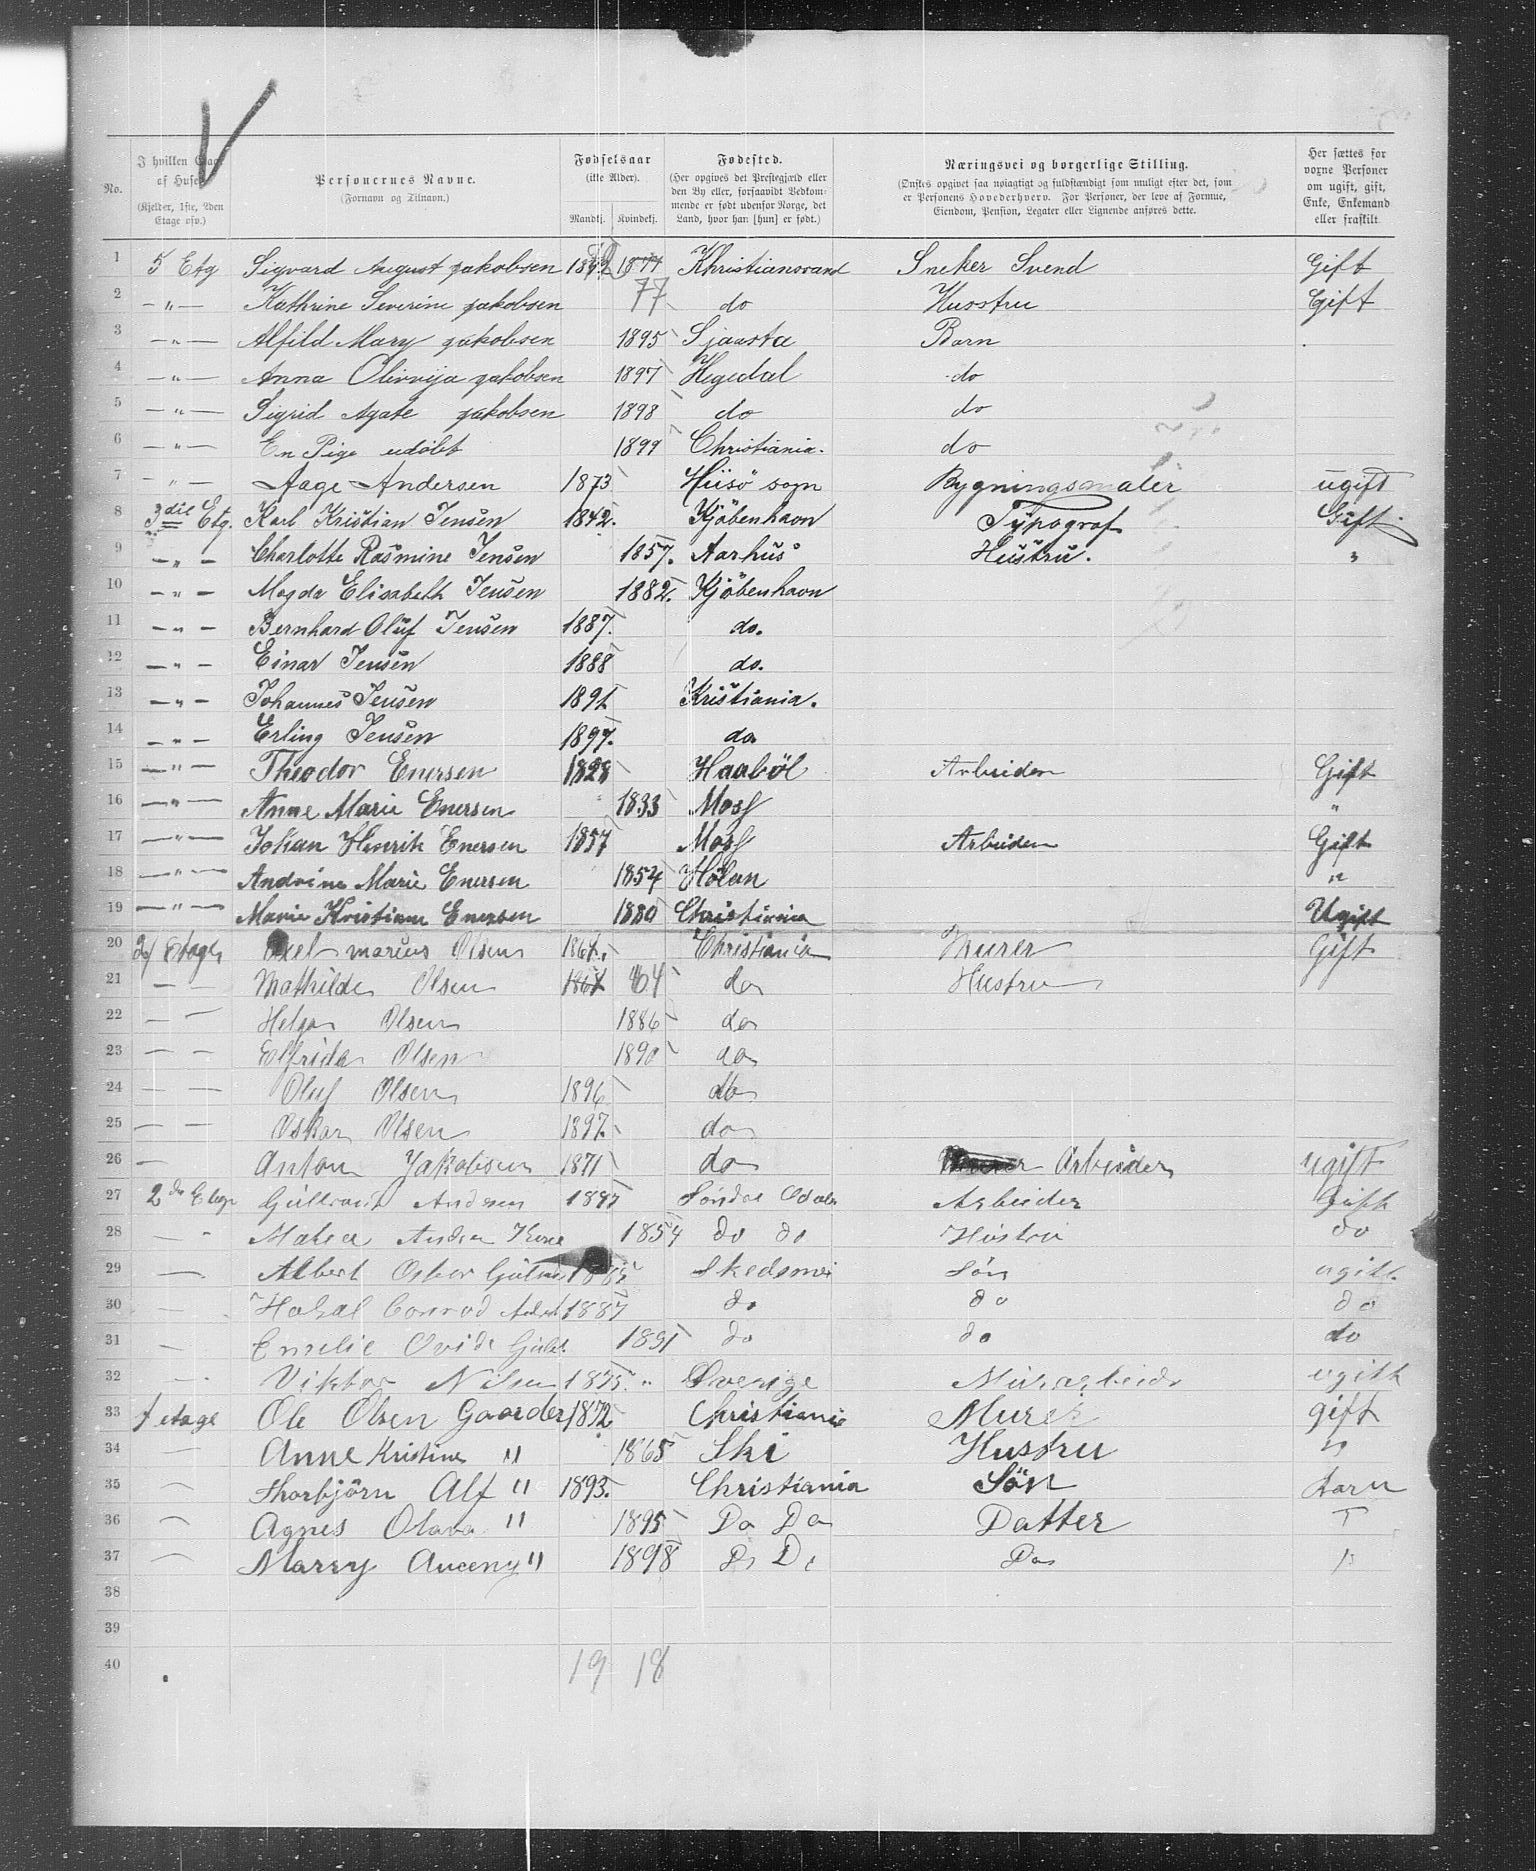 V
No.
I hvilken Etage af Huset (Kjelder, 1ste, 2den Etage osv.)
Personernes Navne. (Fornavn og Tilnavn.)
Fødselsaar (ikke Alder). Mandkj. Kvindekj.
Fødested. (Her opgives det Prestegjeld eller den By eller, forsaavidt Vedkommende er født udenfor Norge, det Land, hvor han [hun] er født.)
Næringsvei og borgerlige Stilling. (Ønskes opgivet saa nøiagtigt og fuldstændigt som muligt efter det, som er Personens Hovederhverv. For Personer, der leve af Formue, Eiendom, Pension, Legater eller Lignende anføres dette.
Her sættes for voxne Personer om ugift, gift, Enke, Enkemand eller fraskilt.
1 5 Etg Sigvard August Jakobsen 1877 Khristiansand Sneker Svend Gift
2 — " — Kathrine Severine Jakobsen 77 do Husstru Gift
3 — " — Alfild Mary Jakobsen 1895 Sjaasta Barn
4 — " — Anna Olivvija Jakobsen 1897 Hegedal do
5 — " — Sigrid Agate Jakobsen 1898 do do
6 — " — En Pige udøbt 1899 Christiania. do
7 — " — Aage Andersen 1873 Hiisö sogn Bygningsmaler ugift
8 3die Etg. Karl Kristian Jensen 1842. Kjöbenhavn Typograf Gift.
9 — " — Charlotte Rasmine Jensen 1857. Aarhus Hustru. "
10 — " — Magda Elisabeth Jensen 1882. Kjöbenhavn
11 — " — Bernhard Oluf Jensen 1887. do.
12 — " — Einar Jensen 1888 do.
13 — " — Johannes Jensen 1891 Kristiania.
14 — " — Erling Jensen 1897. do
15 — " — Theodor Enersen 1828 Haaböl Arbeider Gift
16 — " — Anne Marie Enersen 1833 Moss "
17 — " — Johan Henrik Enersen 1857 Moss Arbeider Gift
18 — " — Andrine Marie Enersen 1854 Hölan "
19 — " — Marie Kristiane Enersen 1880 Christiania Ugift
20 2 Etage Axel marius Olsen 1864. Christiania Murer Gift
21 — — Mathilde Olsen 1864 64 do Hustru
22 — — Helga Olsen 1886 do
23 — — Elfrida Olsen 1890 do
24 — — Oluf Olsen 1896 do
25 — — Oskar Olsen 1897. do
26 — Anton Jakobsen 1871 do Arbeider ugift
27 2den Etage Andersen Söndre Odalen Arbeider Gift
28 — " 1854 do do Hustru do
29 — Albert Oskar Skedsmo Sön ugift
30 — Conrad 1887 do do do
31 — Emelie 1891 do do do
32 — Viktor Nilsen 1875. " Sverige Murarbeider ugift
33 1 etage Ole Olsen Gaarder 1872 Christiania Murer gift
34 — Anne Kristine " 1865 Ski Hustru "
35 — Thorbjörn Alf " 1893. Christiania Sön barn
36 — Agnes Olava " 1895 Do Do Datter "
37 — Marry " 1898 Do Do Do "
38
39
40 19 18